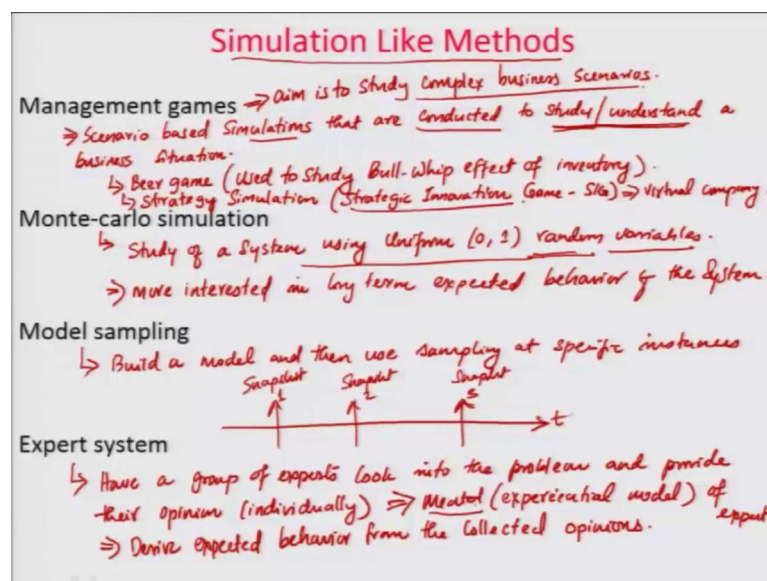 Simulation Like Methods
Management games ⇒ aim is to study complex business scenarios.
⇒ Scenario based simulations that are conducted to study/understand a
business situation.
↳ Beer game (used to study Bull-whip effect of inventory).
↳ Strategy Simulation (Strategic Innovation Game - SIG) ⇒ virtual company
Monte-carlo simulation
↳ Study of a system using Uniform (0, 1) random variables.
⇒ more interested in long term expected behavior of the system
Model sampling
↳ Build a model and then use sampling at specific instances
Snapshot 1 Snapshot 2 Snapshot 3
t
Expert system
↳ Have a group of experts look into the problem and provide
their opinion (individually) ⇒ mental (experiential model) of expert
⇒ Derive expected behavior from the collected opinions.